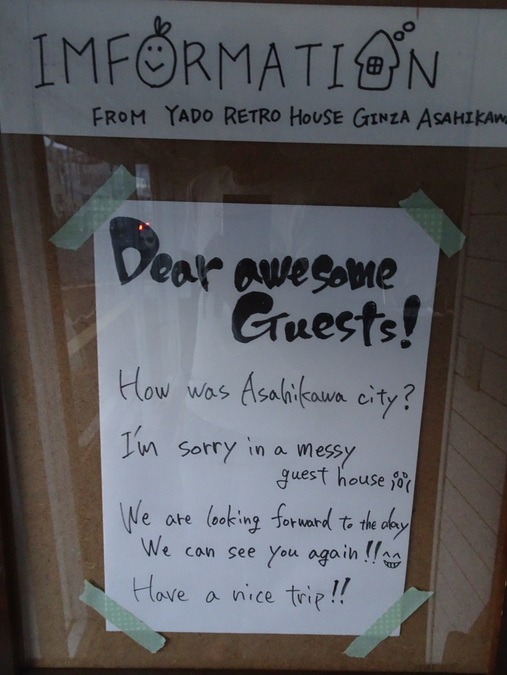 IMFORMATION
FROM YADO RETRO HOUSE GINZA ASAHIKAW
Dear awesome
Guests!
How was Asahikawa city?
I'm sorry in a messy
guest house
We are looking forward to the day
We can see you again!!
Have a nice trip!!